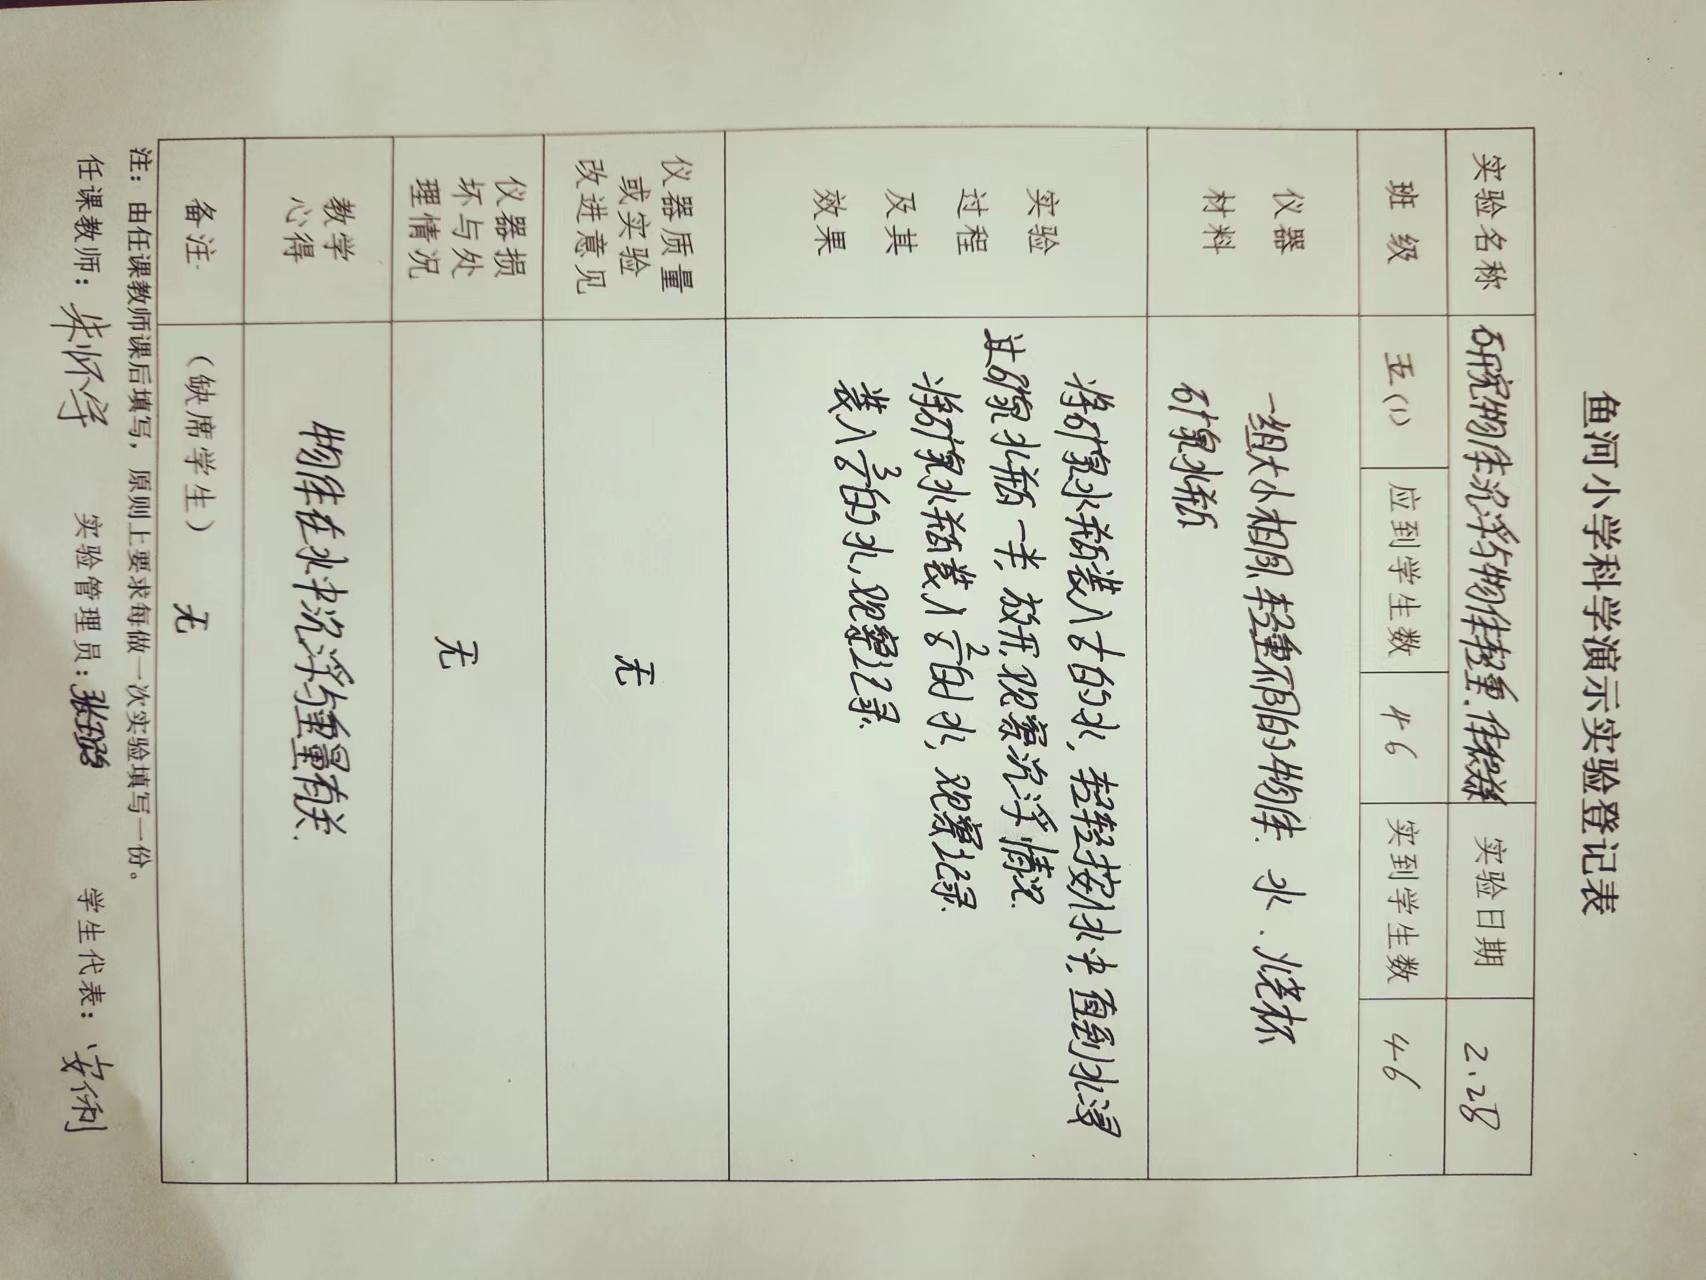 鱼河小学科学演示实验登记表
实验名称 研究物体沉浮与物体轻重.体积 实验日期 2.28
班 级 五(1) 应到学生数 46 实到学生数 46
仪器
材料
一组大小相同,轻重不同的物体. 水. 烧杯
矿泉水瓶
实验
过程
及其
效果
将矿泉水瓶装入 的水, 轻轻按入水中, 直到水浸
过矿泉水瓶一半, 放开, 观察沉浮情况.
将矿泉水瓶装入 的水, 观察记录.
装入 的水, 观察记录.
仪器质量
或实验
改进意见
无
仪器损
坏与处
理情况
无
教学
心得
物体在水中沉浮与重量有关.
备注 (缺席学生) 无
注:由任课教师课后填写,原则上要求每做一次实验填写一份。
任课教师: 实验管理员: 学生代表: